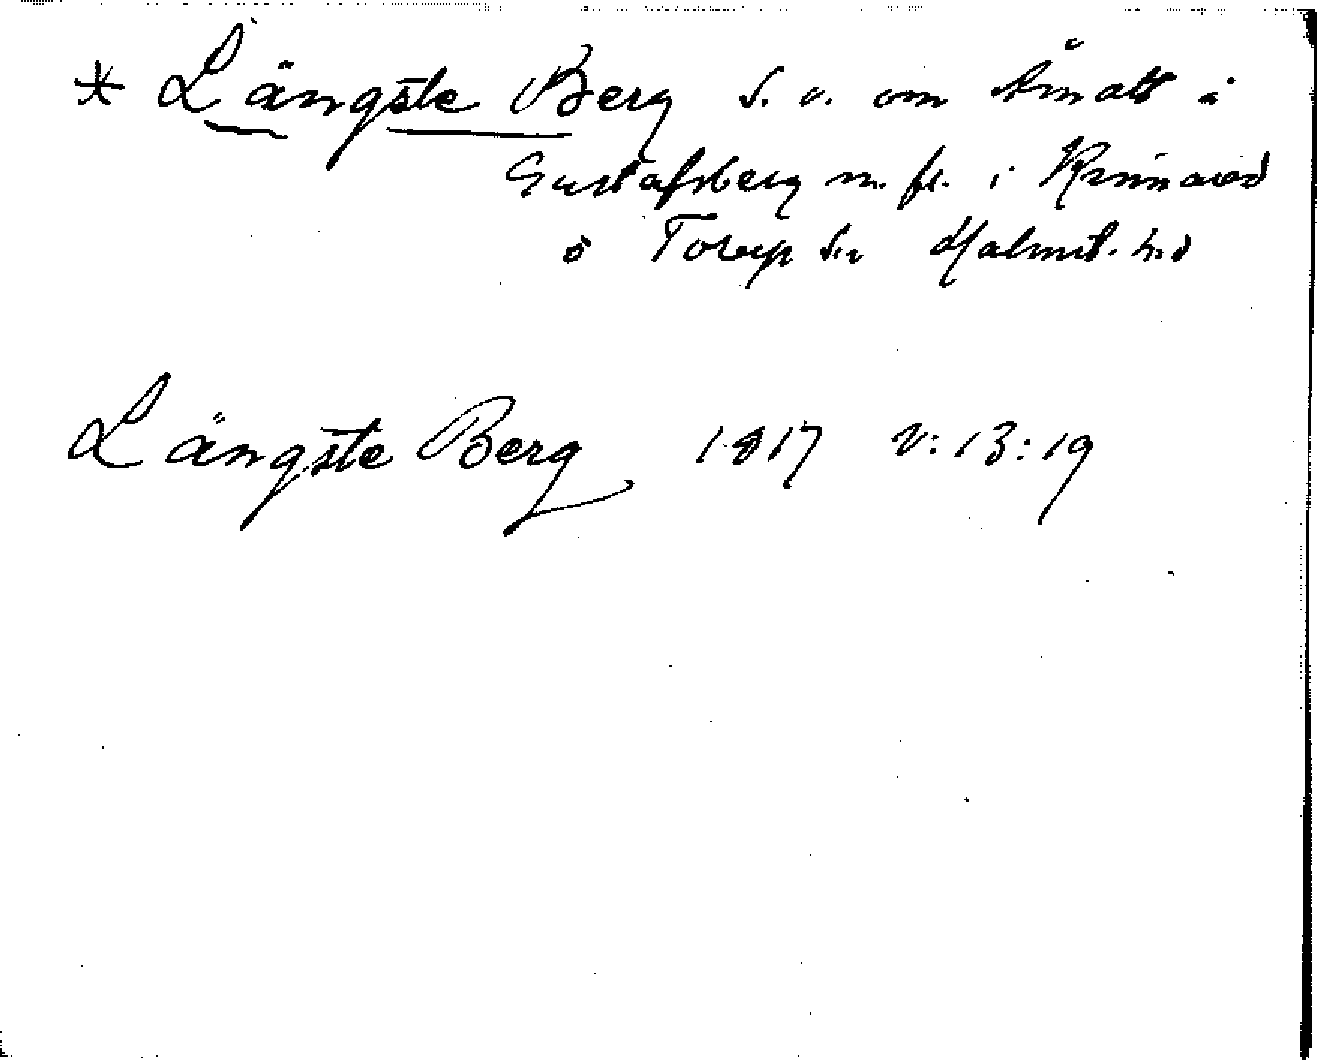 * Längste Berg S. v. om Åmatt i
Gustafsberg m. fl. i Kinnared
o Torup Sn Halmst. hd
Längste Berg 1817 V:13:19